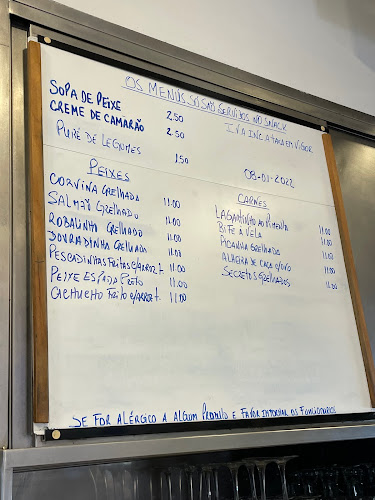 OS MENÚS SÓ SÃO SERVIDOS NO SNACK
SOPA DE PEIXE 2,50
CREME DE CAMARÃO 2.50
IVA INC. A TAXA EM VIGOR
PURÉ DE LEGUMES 1.50
08-01-2022
PEIXES
CORVINA GRELHADA 11.00
SALMÃO GRELHADO 11.00
ROBALINHO GRELHADO 11.00
DOURADINHA GRELHADA 11.00
PESCADINHAS FRITAS C/ARROZ T. 11.00
PEIXE ESPADA PRETO 11.00
CACHUCHO FRITO C/ARROZ T 11.00
CARNES
LAGARTINHO AO PIMENTA 11.00
BIFE À VELA 11.00
PICANHA GRELHADA 11.00
ALHEIRA DE CAÇA C/OVO 11.00
SECRETOS GRELHADOS 11.00
SE FOR ALÉRGICO A ALGUM PRODUTO É FAVOR INFORMAR OS FUNCIONÁRIOS